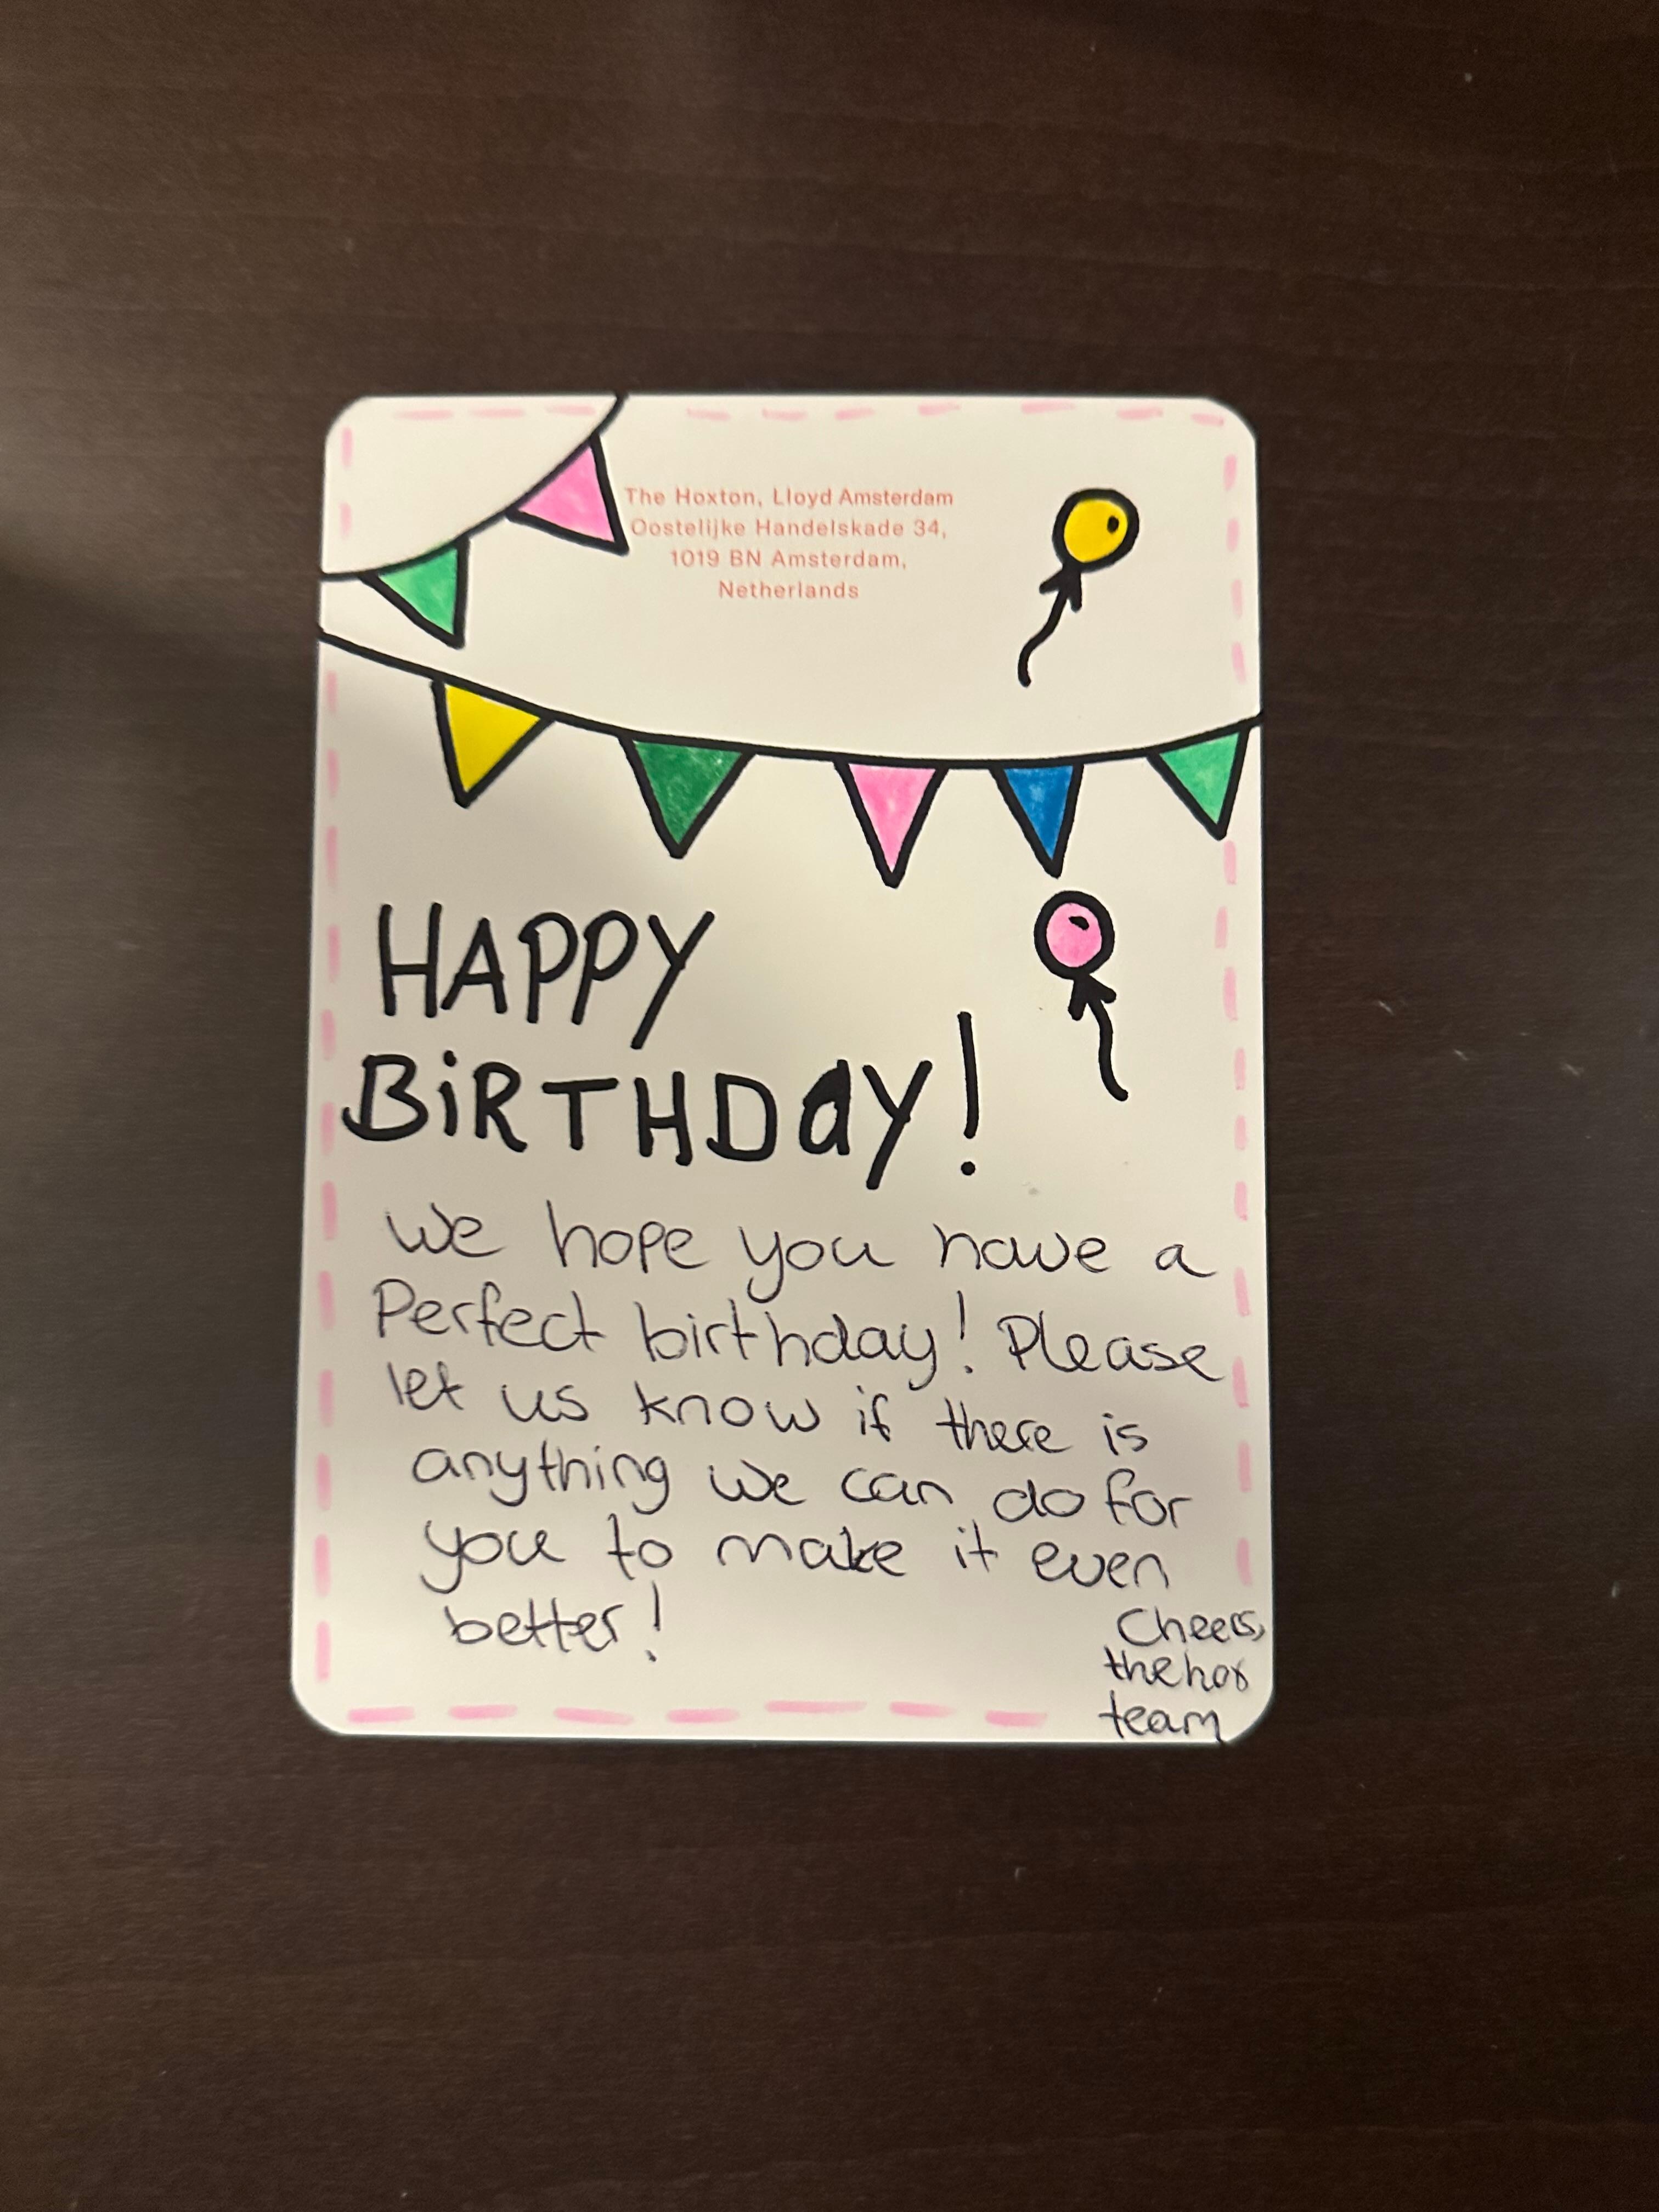 The Hoxton, Lloyd Amsterdam
Oostelijke Handelskade 34,
1019 BN Amsterdam,
Netherlands
HAPPY
BiRTHDay!
We hope you have a
Perfect birthday! Please
let us know if there is
anything we can do for
you to make it even
better!
Cheers,
the hox
team